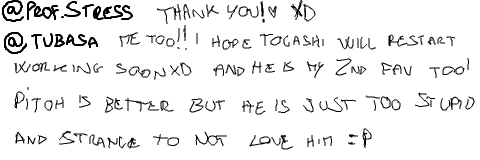 @PROF.STRESS THANK YOU!! XD
@TUBASA ME TOO!! I HOPE TOGASHI WILL RESTART
WORKING SOON XD AND HE IS MY 2ND FAV TOO!
PITOH IS BETTER BUT HE IS JUST TOO STUPID
AND STRANGE TO NOT LOVE HIM =P